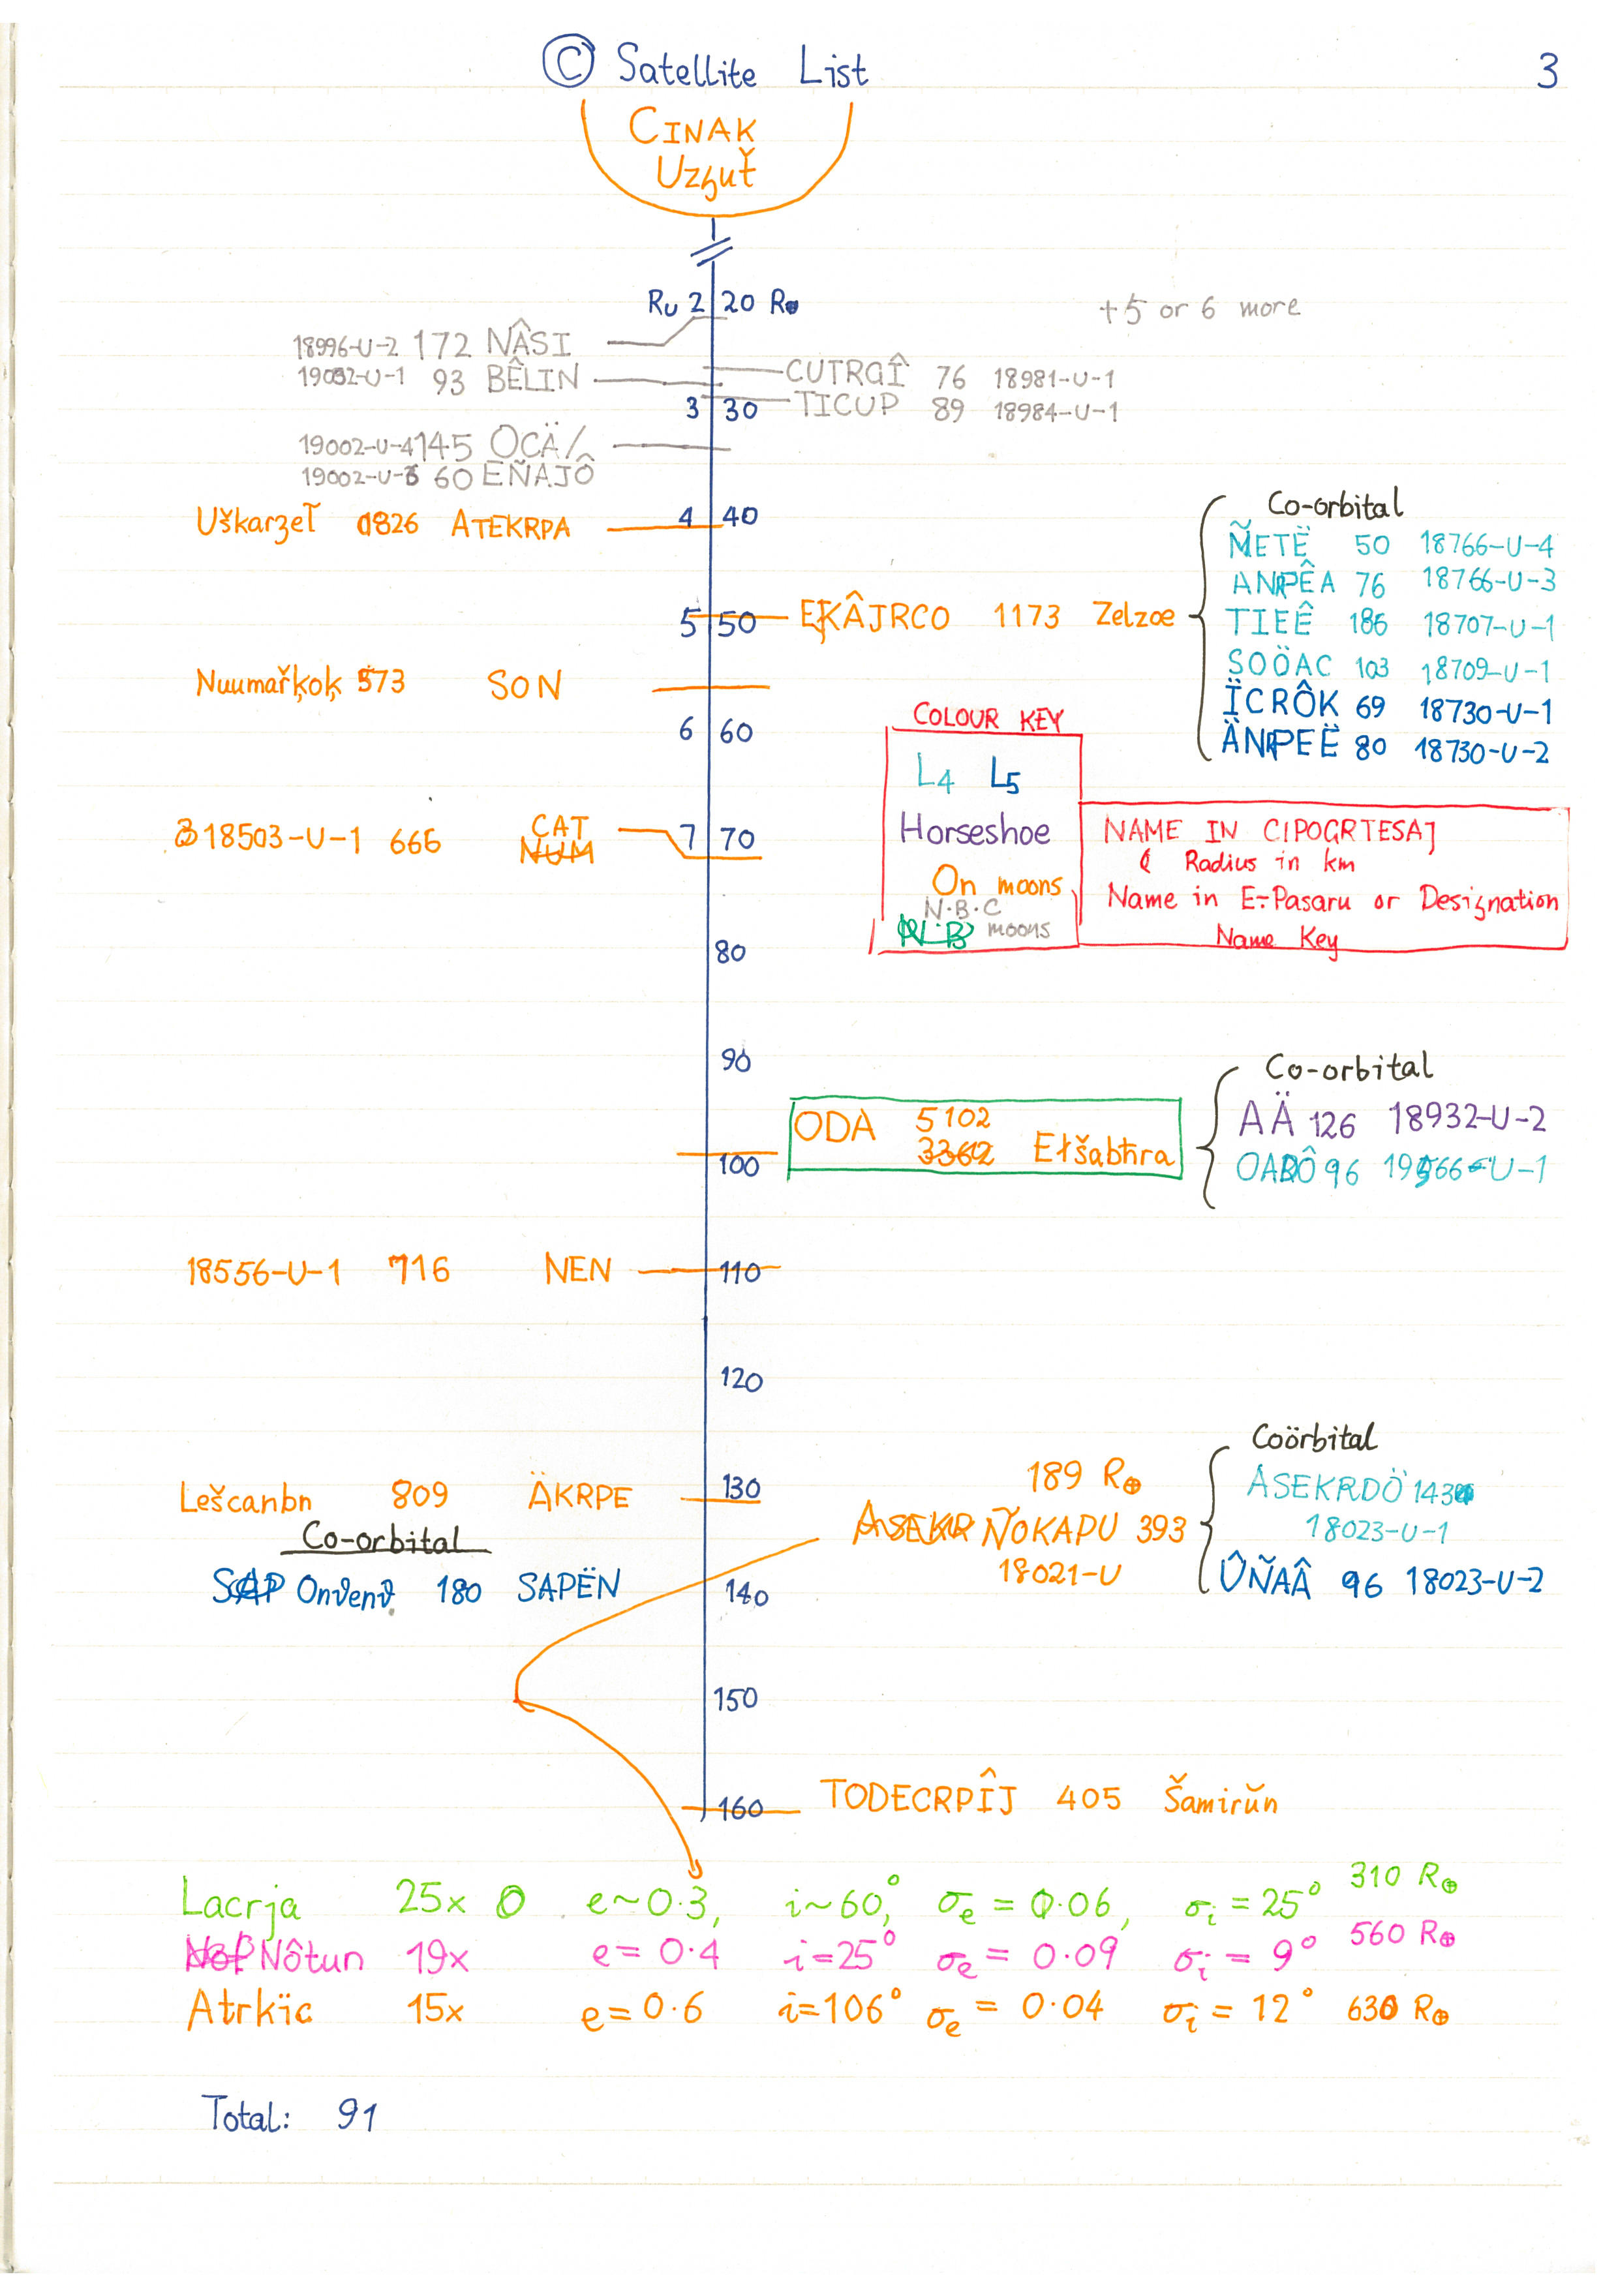 © Satellite List
3
CINAK
Uzȝuť
Ru 2 20 R⊕
+5 or 6 more
18996-U-2 172 NÂSI
CUTRGÎ 76 18981-U-1
19032-U-1 93 BÊLIN
3 30
TICUP 89 18984-U-1
19002-U-4 145 OCÄ/
19002-U-3 60 EÑAJÔ
Co-orbital
Uškarzeľ 1826 ATEKRPA
4 40
ÑETË 50 18766-U-4
ANPÊA 76 18766-U-3
5 50
EKÂJRCO 1173 Zelzoe
TIEÊ 186 18707-U-1
SOÖAC 103 18709-U-1
Nuumařķoķ 573 SON
ÏCRÔK 69 18730-U-1
6 60
ÄNPEË 80 18730-U-2
COLOUR KEY
L4 L5
Horseshoe
On moons
N.B.C
moons
NAME IN CIPOGRTESAJ
& Radius in km
Name in E÷Pasaru or Designation
Name Key
18503-U-1 666 CAT
NUM
7 70
80
90
Co-orbital
ODA 5102
3362 Etšabħra
AÄ 126 18932-U-2
100
OABÔ 96 19566-U-1
18556-U-1 716 NEN
110
120
Coörbital
189 R⊕
Leščanbn 809 ÄKRPE
130
ASEKRDÖ 143
18023-U-1
ASEKR ÑOKAPU 393
18021-U
Co-orbital
SAP Onvenv 180 SAPËN
140
ÛÑAÂ 96 18023-U-2
150
160
TODECRPÎJ 405 Šamirŭn
Lacrja 25x e~0.3, i~60°, σe = 0.06, σi = 25° 310 R⊕
Nôtun 19x e=0.4 i=25° σe = 0.09 σi = 9° 560 R⊕
Atrkïc 15x e=0.6 i=106° σe = 0.04 σi = 12° 630 R⊕
Total: 91